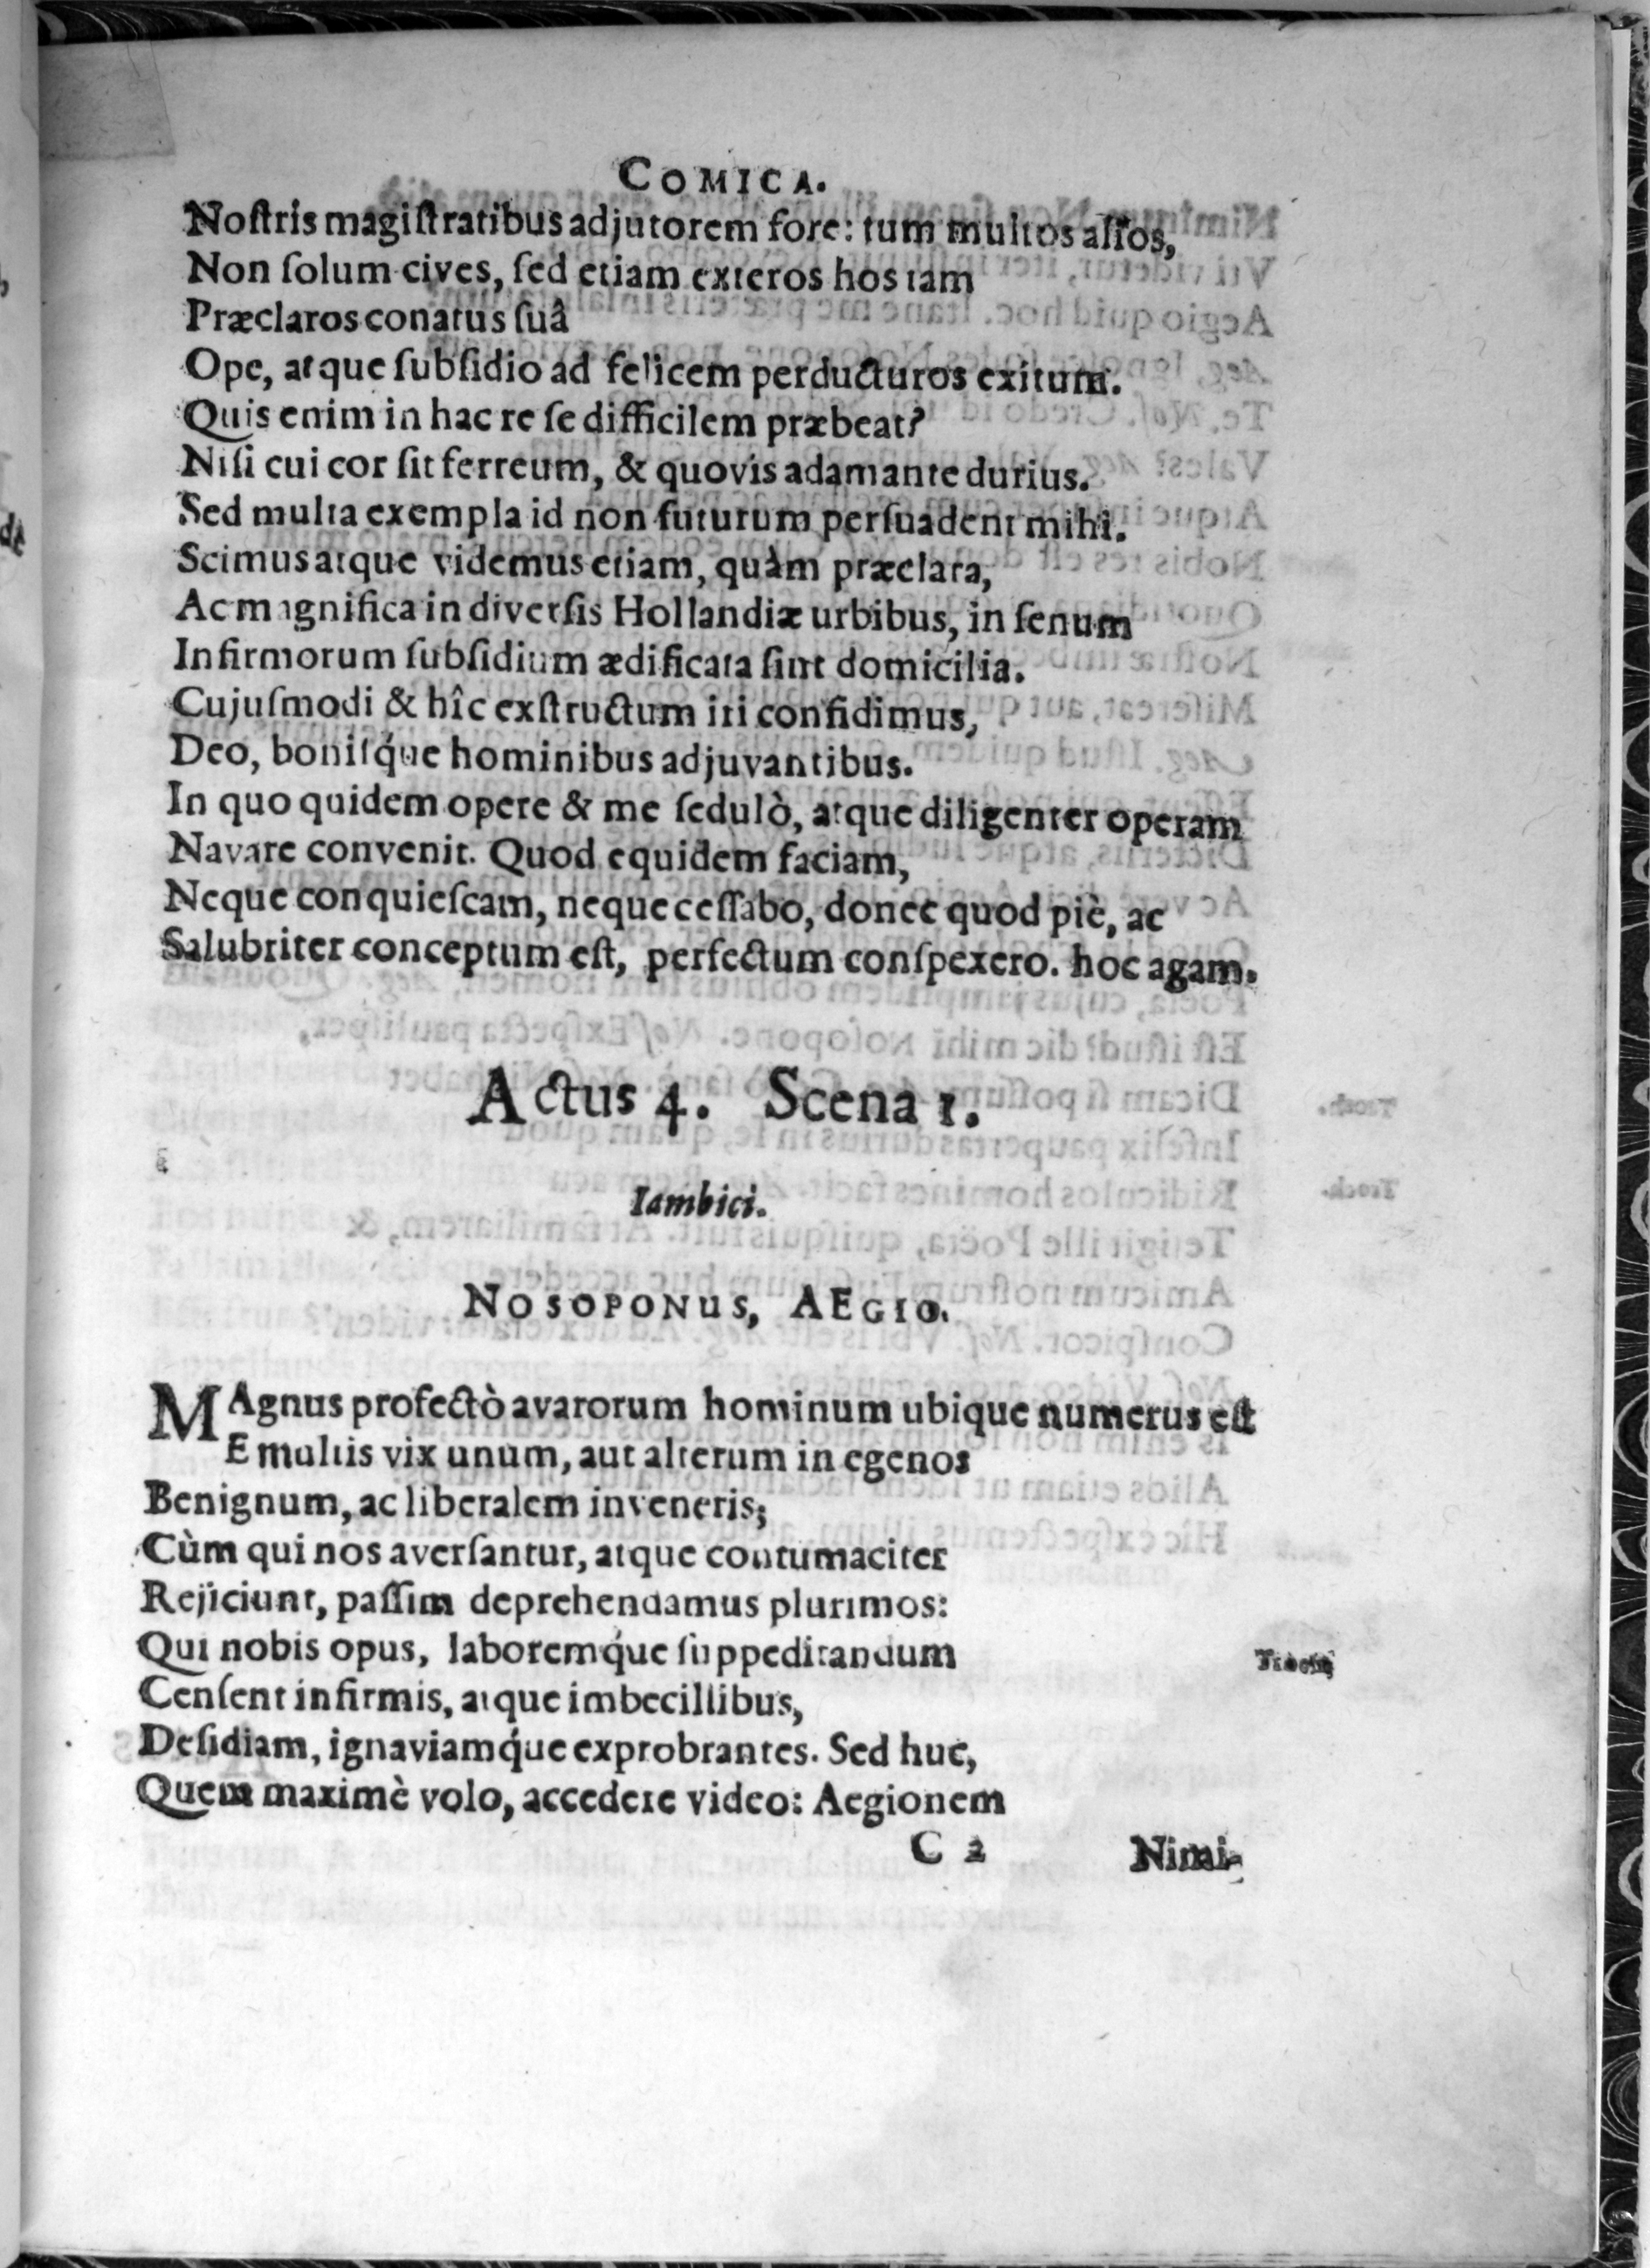 COMICA.
Noſtris magiſtratibus adjutorem fore: tum multos alios,
Non ſolum cives, ſed etiam exteros hos tam
Præclaros conatus ſuâ
Ope, atque ſubſidio ad felicem perducturos exitum.
Quis enim in hac re ſe difficilem præbeat?
Niſi cui cor ſit ferreum, & quovis adamante durius.
Sed multa exempla id non futurum perſuadent mihi.
Scimus atque videmus etiam, quàm præclara,
Ac magnifica in diverſis Hollandiæ urbibus, in ſenum
Infirmorum ſubſidium ædificata ſint domicilia.
Cujuſmodi & hîc exſtructum iri confidimus,
Deo, boniſq́ue hominibus adjuvantibus.
In quo quidem opere & me ſedulò, atque diligenter operam
Navare convenit. Quod equidem faciam,
Neque conquieſcam, neque ceſſabo, donec quod piè, ac
Salubriter conceptum eſt, perfectum conſpexero. hoc agam.
Actus 4. Scena 1.
Iambici.
NOSOPONUS, AEGIO.
MAgnus profectò avarorum hominum ubique numerus eſt
E multis vix unum, aut alterum in egenos
Benignum, ac liberalem inveneris;
Cùm qui nos averſantur, atque contumaciter
Rejiciunt, paſſim deprehendamus plurimos:
Qui nobis opus, laboremq́ue ſuppeditandum
Troch.
Cenſent infirmis, atque imbecillibus,
Deſidiam, ignaviamq́ue exprobrantes. Sed huc,
Quem maximè volo, accedere video: Aegionem
C 2 Nimi-